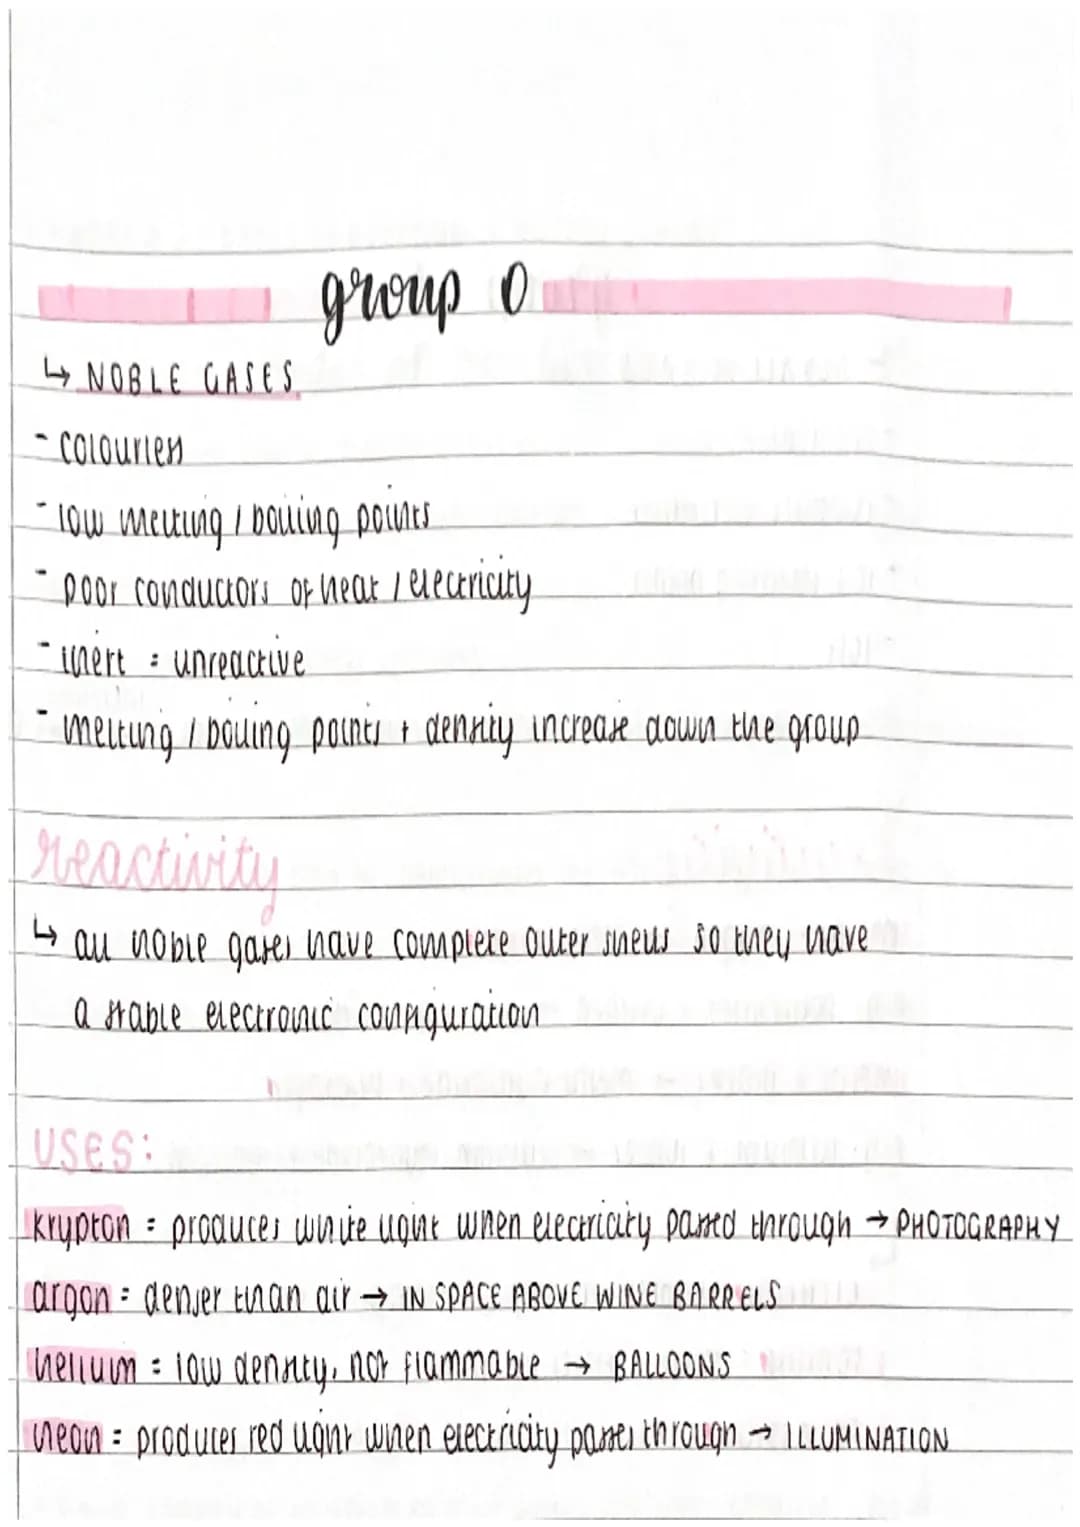 group 0
↳ NOBLE GASES
- colourless
- low melting / boiling points
- poor conductors of heat / electricity
- inert = unreactive
- melting / boiling points + density increase down the group
reactivity
↳ all noble gases have complete outer shells so they have
a stable electronic configuration
USES:
krypton = produces white light when electricity passed through → PHOTOGRAPHY
argon = denser than air → IN SPACE ABOVE WINE BARRELS
helium = low density, not flammable → BALLOONS
neon = produces red light when electricity passes through → ILLUMINATION